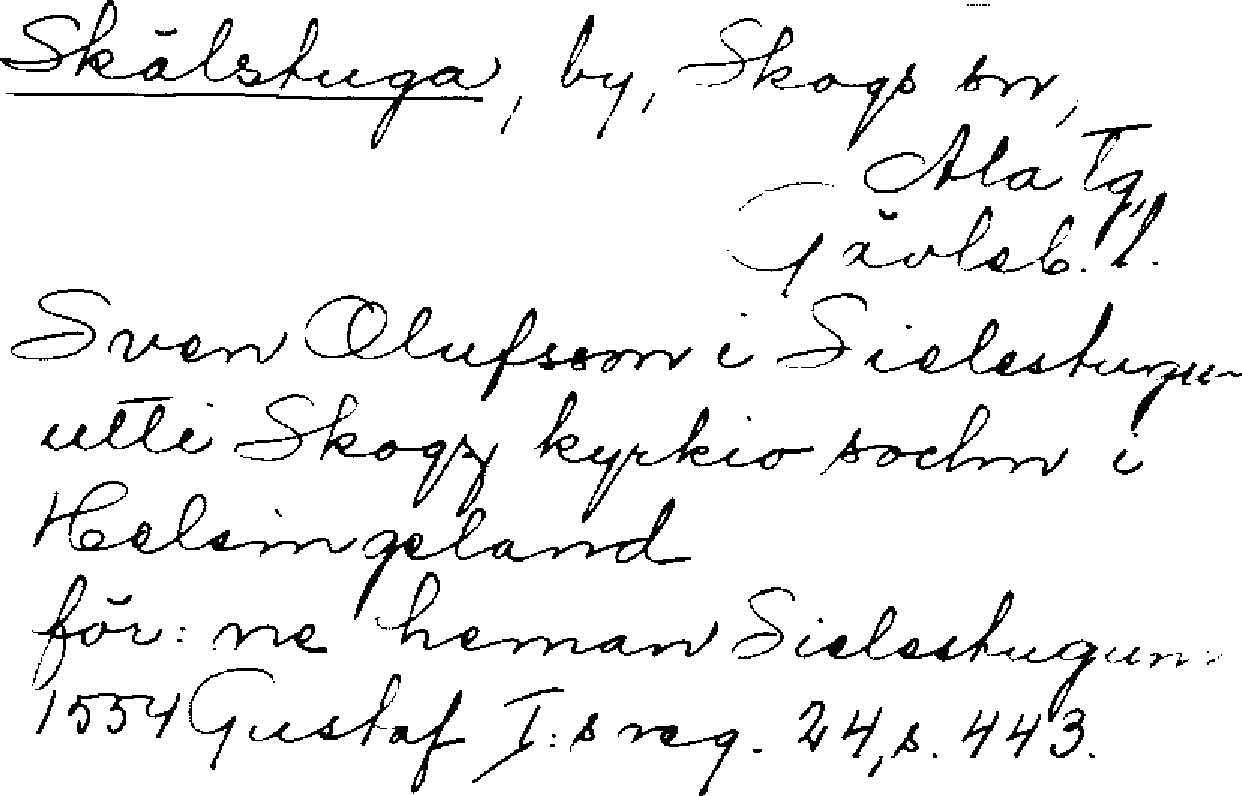 Skälstuga, by, Skogs sn,
Ala Tg,
Gävleb. l.
Sven Olufsson i Sielestugun
utti Skogz kyrkio sochn i
Helsingeland
för:ne heman Sielestugun
1554 Gustaf I:s reg. 24, s. 443.